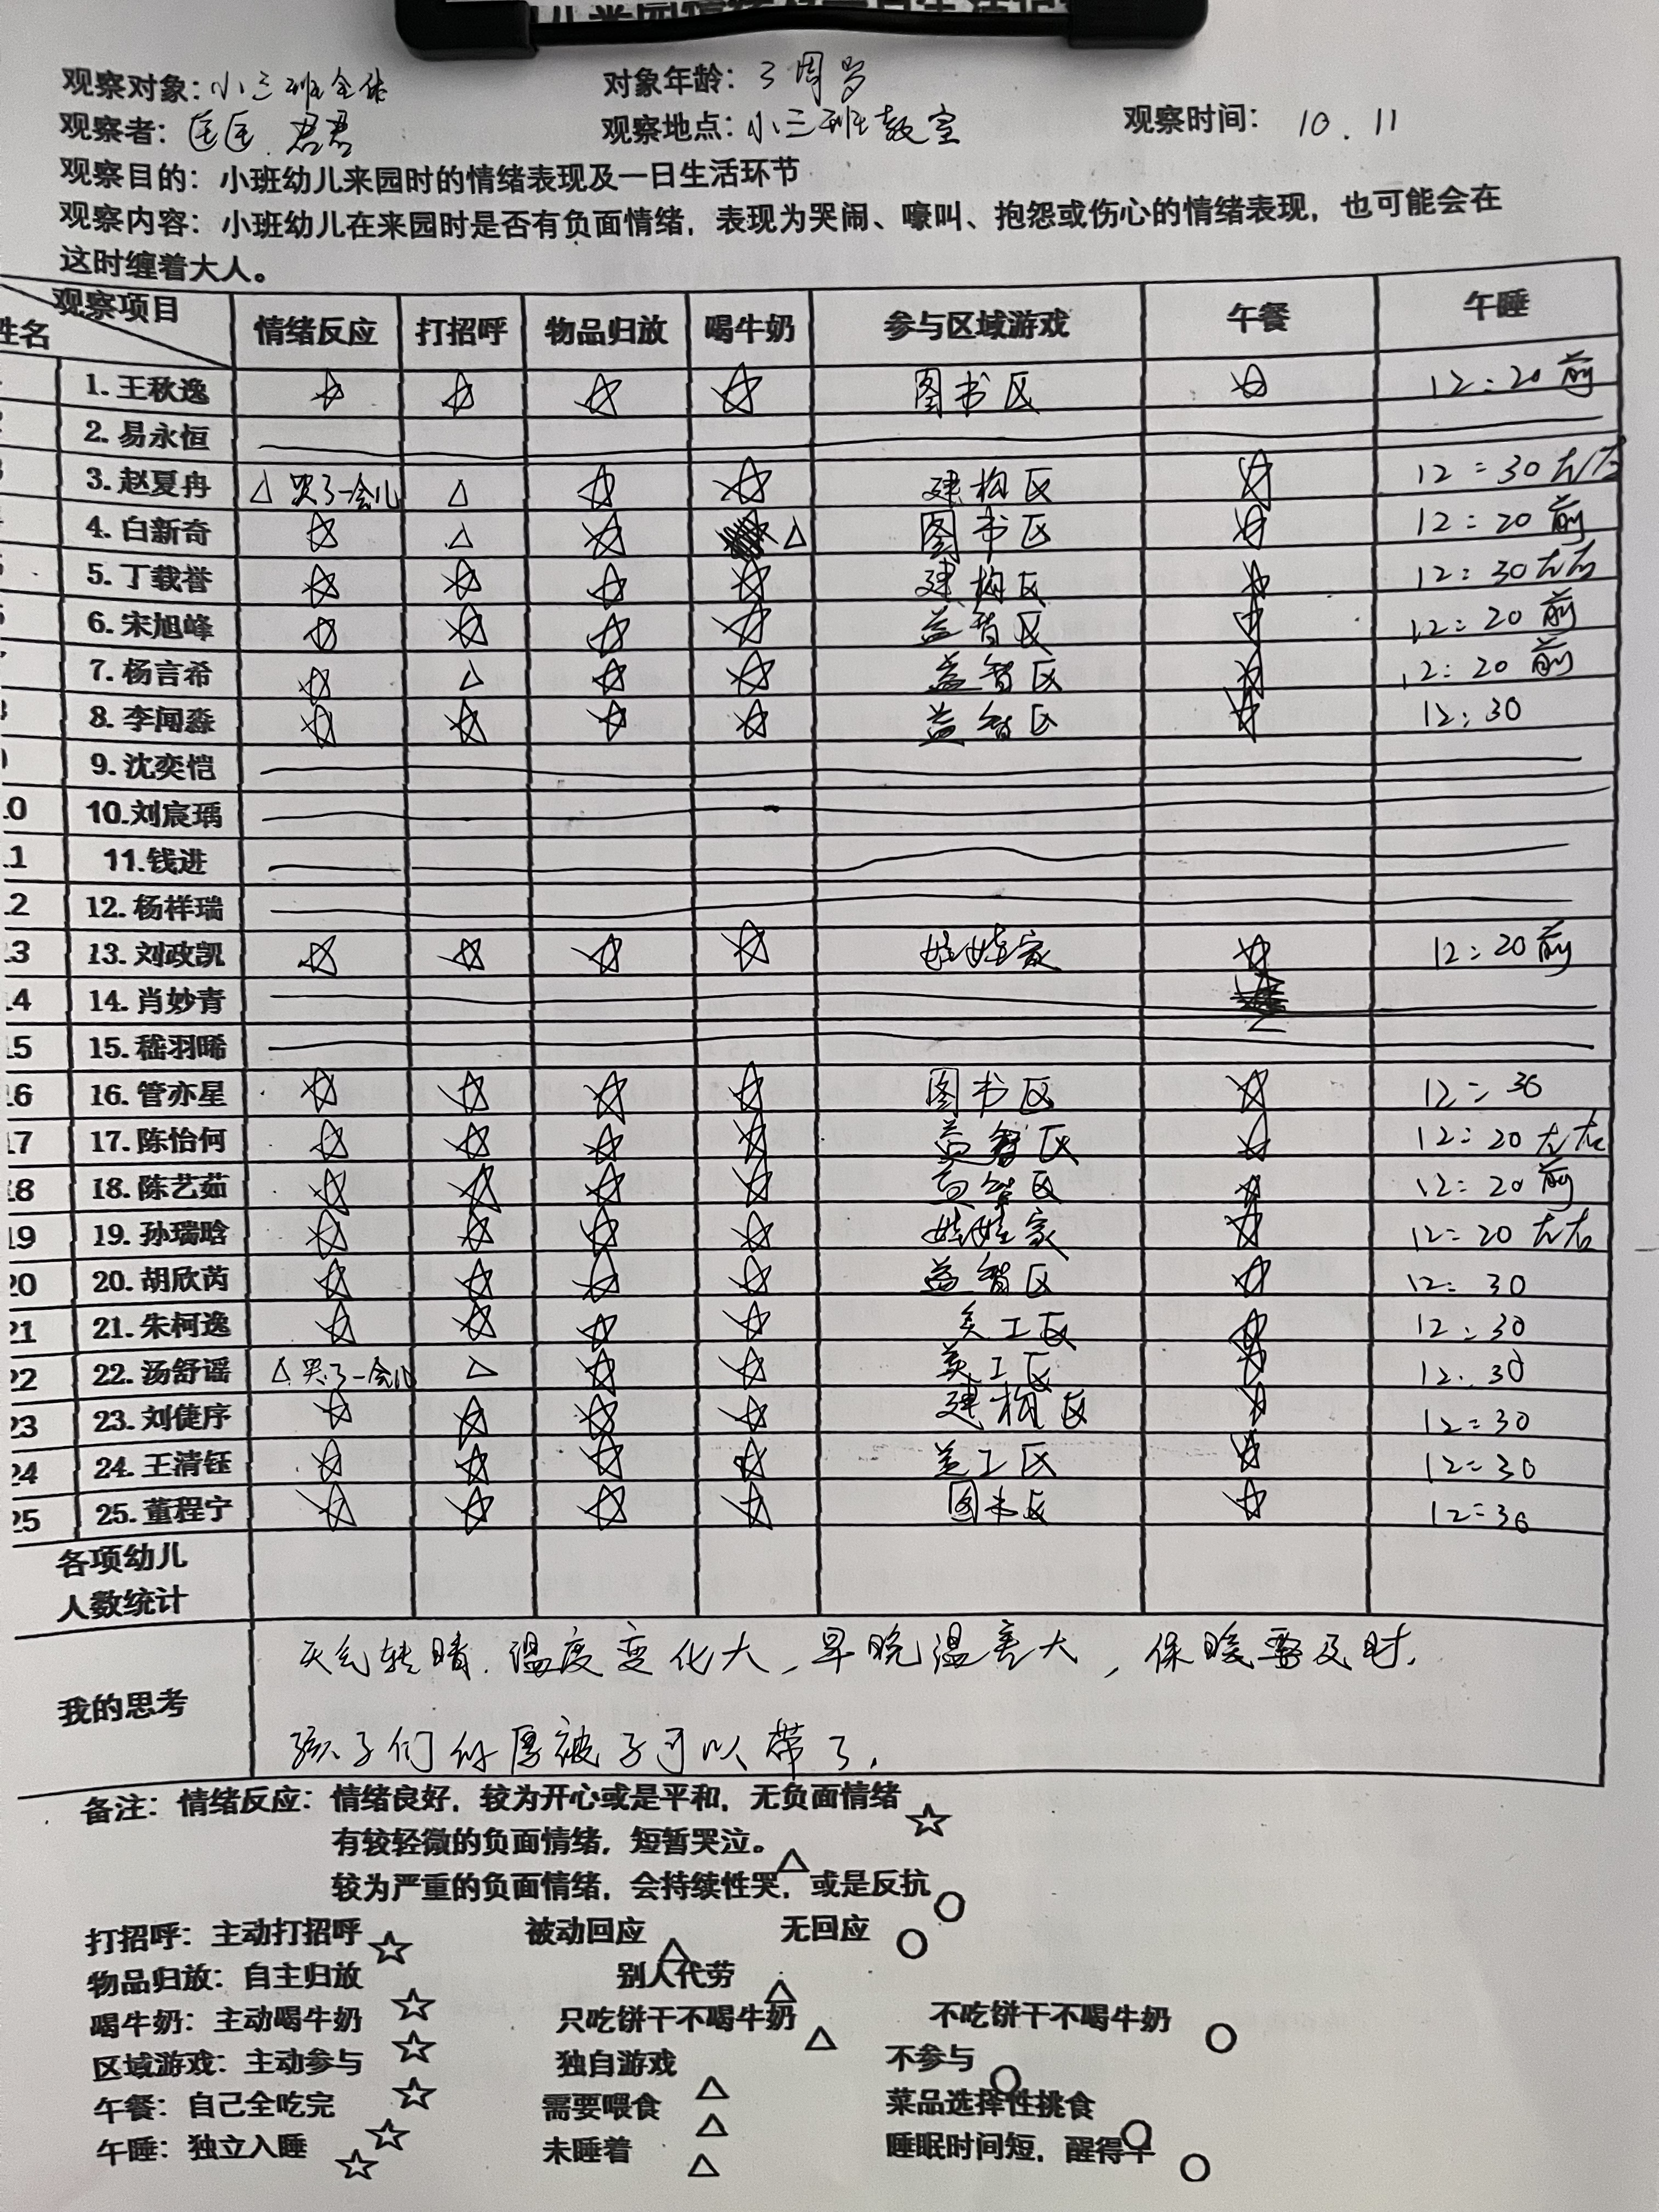 观察对象：小三班全体 对象年龄：3周岁
观察者：匡匡 君君 观察地点：小三班教室 观察时间：10.11
观察目的：小班幼儿来园时的情绪表现及一日生活环节
观察内容：小班幼儿在来园时是否有负面情绪，表现为哭闹、嚎叫、抱怨或伤心的情绪表现，也可能会在
这时缠着大人。
观察项目 姓名 情绪反应 打招呼 物品归放 喝牛奶 参与区域游戏 午餐 午睡
1.王秋逸 ☆ ☆ ☆ ☆ 图书区 ☆ 12:20前
2.易永恒
3.赵夏冉 △哭了一会儿 △ ☆ ☆ 建构区 ☆ 12:30左右
4.白新奇 ☆ △ ☆ △ 图书区 ☆ 12:20前
5.丁载誉 ☆ ☆ ☆ ☆ 建构区 ☆ 12:30左右
6.宋旭峰 ☆ ☆ ☆ ☆ 益智区 ☆ 12:20前
7.杨言希 ☆ △ ☆ ☆ 益智区 ☆ 12:20前
8.李闻淼 ☆ ☆ ☆ ☆ 益智区 ☆ 12:30
9.沈奕恺
10 10.刘宸瑀
11 11.钱进
12 12.杨祥瑞
13 13.刘政凯 ☆ ☆ ☆ ☆ 娃娃家 ☆ 12:20前
14 14.肖妙青
15 15.嵇羽晞
16 16.管亦星 ☆ ☆ ☆ ☆ 图书区 ☆ 12:30
17 17.陈怡何 ☆ ☆ ☆ ☆ 益智区 ☆ 12:20左右
18 18.陈艺茹 ☆ ☆ ☆ ☆ 益智区 ☆ 12:20前
19 19.孙瑞晗 ☆ ☆ ☆ ☆ 娃娃家 ☆ 12:20左右
20 20.胡欣芮 ☆ ☆ ☆ ☆ 益智区 ☆ 12:30
21 21.朱柯逸 ☆ ☆ ☆ ☆ 美工区 ☆ 12:30
22 22.汤舒谣 △哭了一会儿 △ ☆ ☆ 美工区 ☆ 12:30
23 23.刘倢序 ☆ ☆ ☆ ☆ 建构区 ☆ 12:30
24 24.王清钰 ☆ ☆ ☆ ☆ 美工区 ☆ 12:30
25 25.董程宁 ☆ ☆ ☆ ☆ 图书区 ☆ 12:30
各项幼儿
人数统计
我的思考
天气转晴.温度变化大,早晚温差大,保暖要及时.
孩子们的厚被子可以带了.
备注：情绪反应：情绪良好，较为开心或是平和，无负面情绪☆
有较轻微的负面情绪，短暂哭泣。△
较为严重的负面情绪，会持续性哭，或是反抗○
打招呼：主动打招呼☆ 被动回应△ 无回应○
物品归放：自主归放☆ 别人代劳△
喝牛奶：主动喝牛奶☆ 只吃饼干不喝牛奶△ 不吃饼干不喝牛奶○
区域游戏：主动参与☆ 独自游戏△ 不参与○
午餐：自己全吃完☆ 需要喂食△ 菜品选择性挑食○
午睡：独立入睡☆ 未睡着△ 睡眠时间短，醒得早○